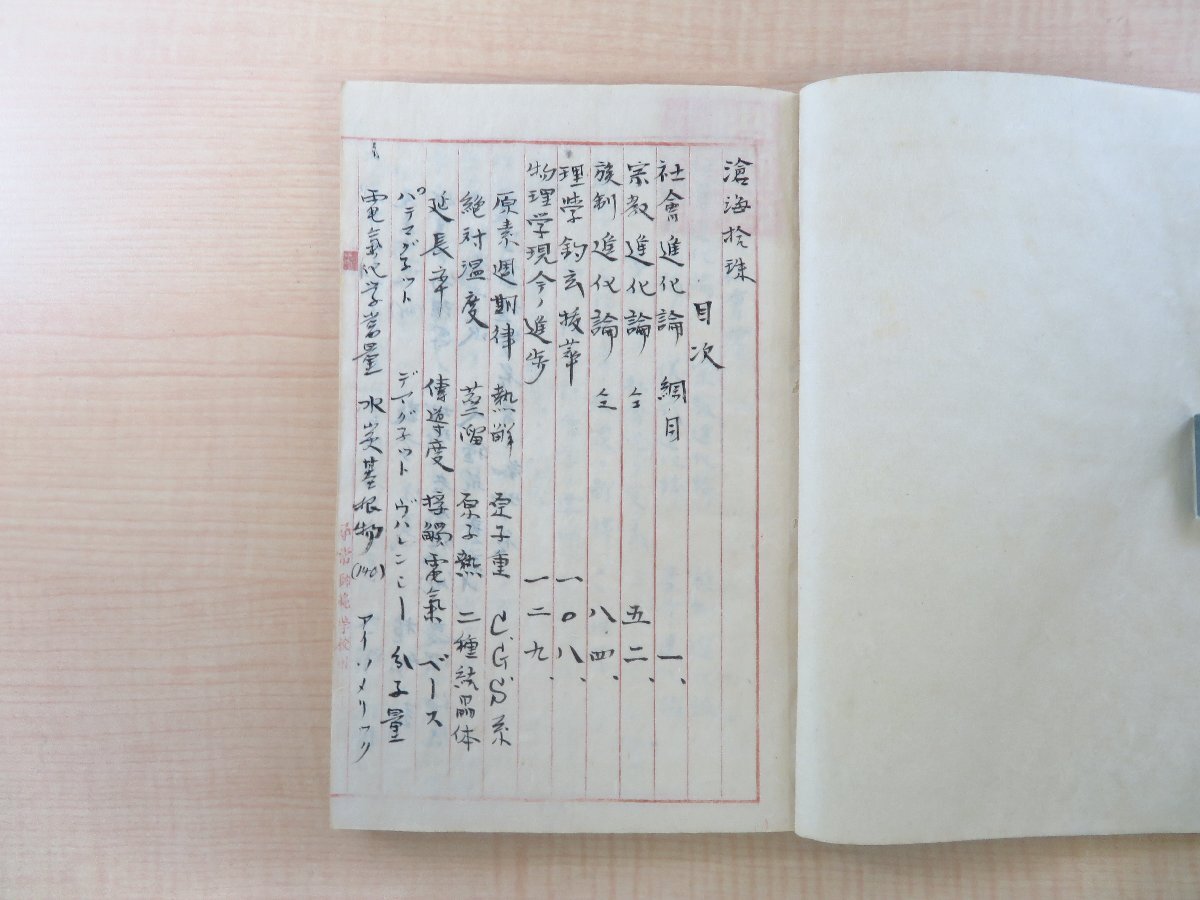 滄海拾珠
目次
社會進化論 綱目 一、
宗教進化論 仝 五二、
族制進化論 仝 八四、
理学鈎玄抜萃 一〇八、
物理学現今ノ進歩 一二九、
原素週期律 熱解 原子重 C.G.S系
絶対温度 蒸溜 原子熱 二種結晶体
延長率 傳導度 接觸電氣 ベース
パラマグネット デヤマグネット ヴハレンシー 分子量
電氣化学当量 水炭基根物(140) アイソメリック
尋常師範学校